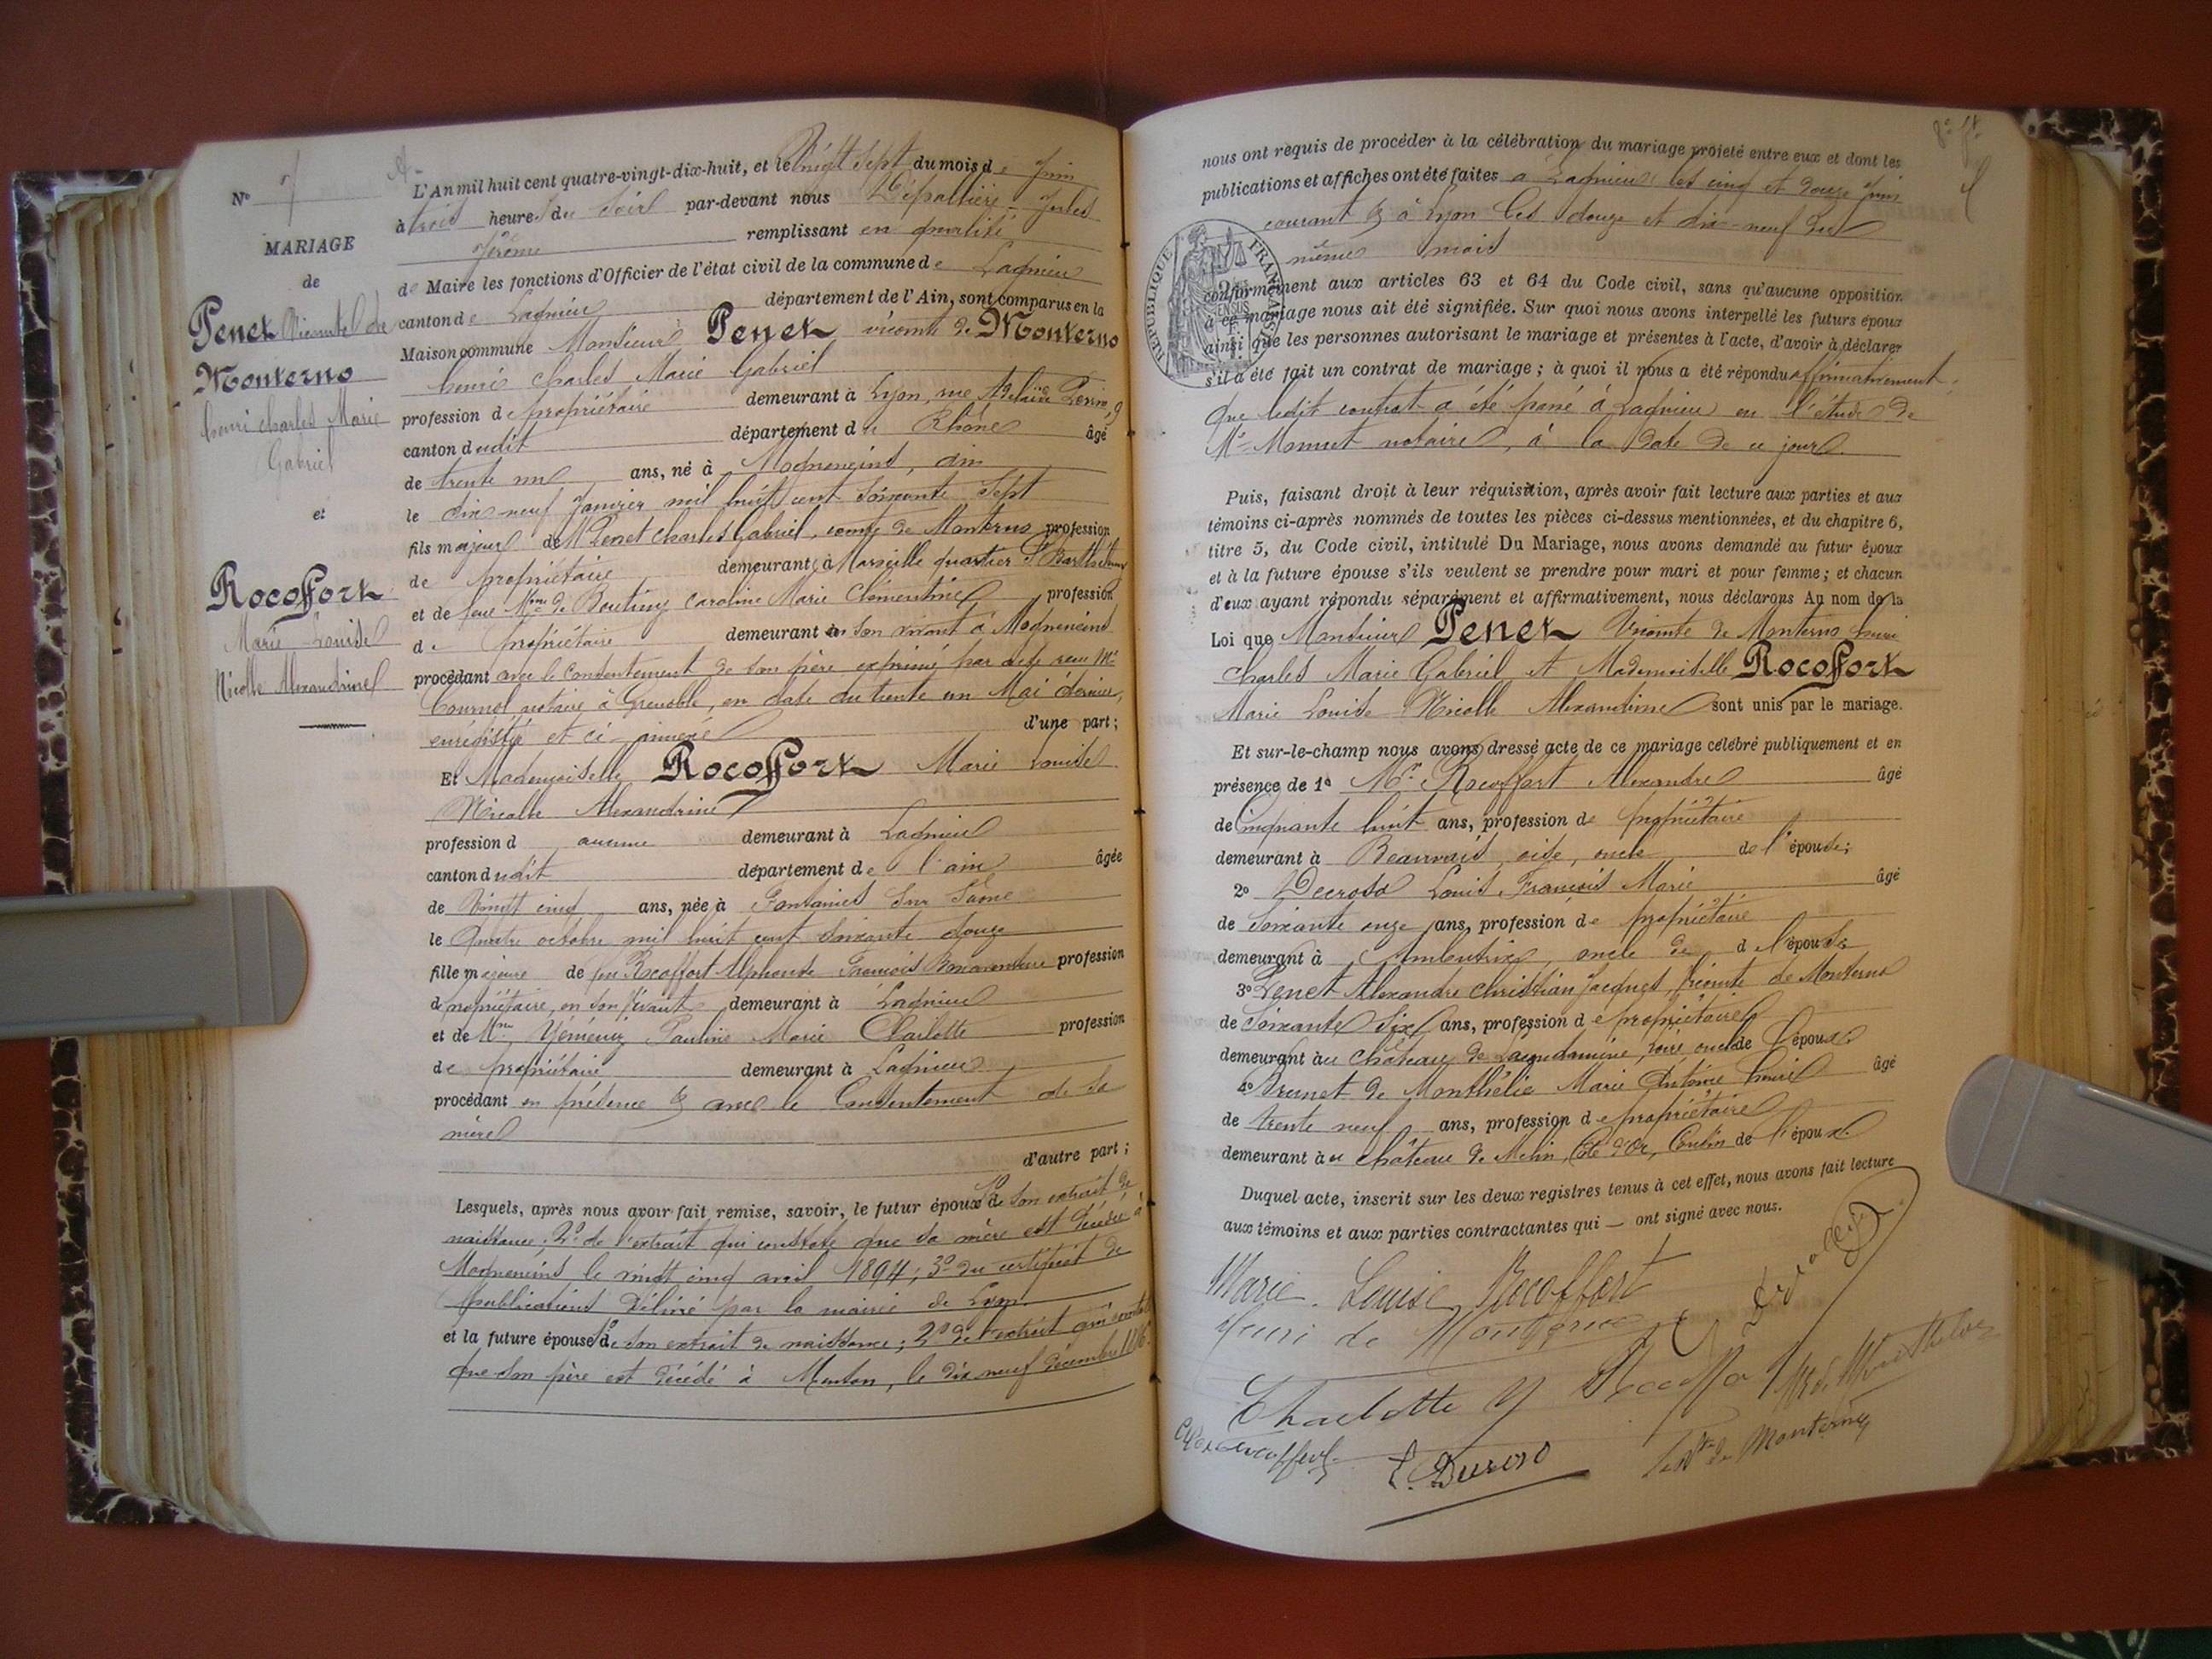 N° 7
MARIAGE
de
Penet Vicomte de
Monterno
henri charles Marie
Gabriel
et
Rocoffort
Marie Louise
Nicolle Alexandrine
L'An mil huit cent quatre-vingt-dix-huit, et le vingt sept du mois de Juin
à trois heures du soir par-devant nous Dépallière Jules
Jérôme remplissant en qualité
de Maire les fonctions d'Officier de l'état civil de la commune de Lagnieu
canton de Lagnieu département de l'Ain, sont comparus en la
Maison commune Monsieur Penet vicomte de Monterno
henri charles Marie Gabriel
profession de propriétaire demeurant à Lyon, rue Adélaïde Perrin, 9
canton dudit département du Rhône âgé
de trente un ans, né à Mogneneins, ain
le dix neuf Janvier mil huit cent soixante sept
fils majeur de M Penet charles Gabriel, comte de Monterno profession
de propriétaire demeurant à Marseille quartier St Barthélemy
et de feue Mme de Boutiny Caroline Marie Clémentine profession
de propriétaire demeurant en son vivant à Mogneneins
procédant avec le consentement de son père exprimé par acte reçu Me
Cournol notaire à Grenoble, en date du trente un Mai dernier,
enregistré et ci annexé d'une part;
Et Mademoiselle Rocoffort Marie Louise
Nicolle Alexandrine
profession d aucune demeurant à Lagnieu
canton dudit département de l'ain âgée
de Vingt cinq ans, née à Fontaines sur Saône
le Quatre octobre mil huit cent soixante douze
fille majeure de feu Rocoffort Alphonse François Bonaventure profession
de propriétaire, en son vivant demeurant à Lagnieu
et de Mme Yéméniz Pauline Marie Charlotte profession
de propriétaire demeurant à Lagnieu
procédant en présence & avec le Consentement de sa
mère
d'autre part;
Lesquels, après nous avoir fait remise, savoir, le futur époux 1° de son extrait de
naissance; 2° de l'extrait qui constate que sa mère est décédée à
Mogneneins le vingt cinq avril 1894; 3° du certificat de
publications délivré par la mairie de Lyon.
et la future épouse 1° de son extrait de naissance; 2° de l'extrait qui constate
que son père est décédé à Menton, le dix neuf décembre
nous ont requis de procéder à la célébration du mariage projeté entre eux et dont les
publications et affiches ont été faites à Lagnieu les cinq et douze Juin
courant & à Lyon les douze et dix-neuf du
même mois
conformément aux articles 63 et 64 du Code civil, sans qu'aucune opposition
à ce mariage nous ait été signifiée. Sur quoi nous avons interpellé les futurs époux
ainsi que les personnes autorisant le mariage et présentes à l'acte, d'avoir à déclarer
s'il a été fait un contrat de mariage; à quoi il nous a été répondu affirmativement,
que ledit contrat a été passé à Lagnieu en l'étude de
Me Monnet notaire, à la date de ce jour.
Puis, faisant droit à leur réquisition, après avoir fait lecture aux parties et aux
témoins ci-après nommés de toutes les pièces ci-dessus mentionnées, et du chapitre 6,
titre 5, du Code civil, intitulé Du Mariage, nous avons demandé au futur époux
et à la future épouse s'ils veulent se prendre pour mari et pour femme; et chacun
d'eux ayant répondu séparément et affirmativement, nous déclarons Au nom de la
Loi que Monsieur Penet Vicomte de Monterno henri
charles Marie Gabriel et Mademoiselle Rocoffort
Marie Louise Nicolle Alexandrine sont unis par le mariage.
Et sur-le-champ nous avons dressé acte de ce mariage célébré publiquement et en
présence de 1° Mr Rocoffort Alexandre âgé
de Cinquante huit ans, profession de propriétaire
demeurant à Beauvais, oise, oncle de l'épouse;
2° Decroso Louis François Marie âgé
de Soixante onze ans, profession de propriétaire
demeurant à Ambutrix, oncle de d l'épouse
3° Penet Alexandre christian Jacques, vicomte de Monterno
de Soixante Six ans, profession de propriétaire
demeurant au château de Loire oncle de l'époux
4° Brunet de Monthélie Marie Antoine henri âgé
de trente neuf ans, profession de propriétaire
demeurant au château de Melin, Côte d'Or, Cousin de l'époux
Duquel acte, inscrit sur les deux registres tenus à cet effet, nous avons fait lecture
aux témoins et aux parties contractantes qui — ont signé avec nous.
Marie Louise Rocoffort
Henri de Monterno
Charlotte Y Rocoffort
de Monterno
RÉPUBLIQUE FRANÇAISE